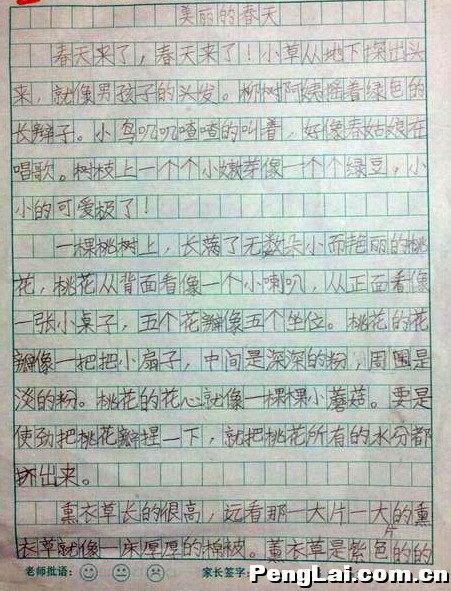 美丽的春天
春天来了,春天来了!小草从地下探出头
来,就像男孩子的头发。柳树阿姨摇着绿色的
长辫子。小鸟叽叽喳喳的叫着,好像春姑娘在
唱歌。树枝上一个个小嫩芽像一个个绿豆,小
小的可爱极了!
一棵桃树上,长满了无数朵小而艳丽的桃
花,桃花从背面看像一个小喇叭,从正面看像
一张小桌子,五个花瓣像五个坐位。桃花的花
瓣像一把把小扇子,中间是深深的粉,周围是
淡的粉。桃花的花心就像一棵棵小蘑菇。要是
使劲把桃花瓣捏一下,就把桃花所有的水分都
挤出来。
熏衣草长的很高,远看那一大片一大片的熏
衣草就像一床厚厚的棉被。薰衣草是紫色的的
老师批语: 家长签字:
PengLai.com.cn